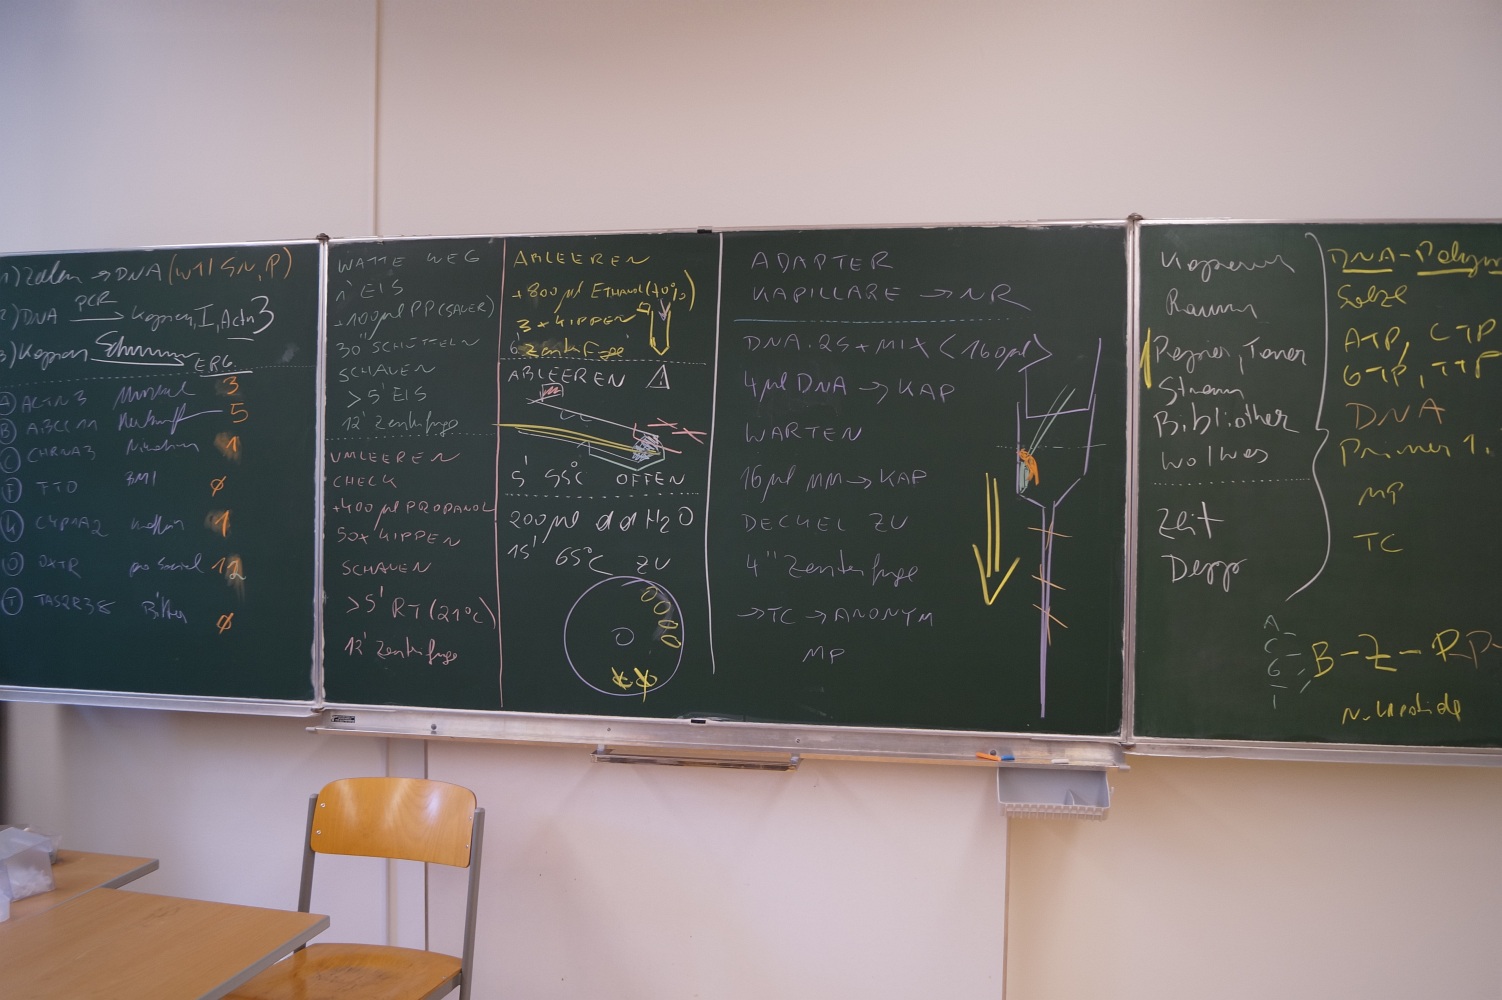 1) Zellen → DNA (W1! SN, P)
2) DNA PCR → Kopien, I, Actn 3
3) Kopien
ERG.
A ACTN3 Muskel 3
B ABCC11 5
C CHRNA3 Nikotin 1
F FTO BMI ø
K CYP1A2 Koffein 1
O OXTR pro sozial 12
T TAS2R38 Bitter ø
WATTE WEG
1' EIS
+100µl PP (SAUER)
30" SCHÜTTELN
SCHAUEN
> 5' EIS
12' Zentrifuge
UMLEEREN
CHECK
+400µl PROPANOL
50x KIPPEN
SCHAUEN
> 5' RT (21°C)
12' Zentrifuge
ABLEEREN
+800µl ETHANOL (70%)
3x KIPPEN
6' Zentrifuge
ABLEEREN ⚠
5' 55°C OFFEN
200µl ddH2O
15' 65°C ZU
ADAPTER
KAPILLARE → NR
DNA: 25+ MIX (160µl)
4µl DNA → KAP
WARTEN
16µl MM → KAP
DECKEL ZU
4" Zentrifuge
→ TC → ANONYM
MP
Kopierer
Raum
Papier, Toner
Strom
Bibliothek
Wo/Was
Zeit
Depp
DNA-Polym
Salze
ATP, CTP
GTP, TTP
DNA
Primer 1,
MP
TC
A
C
G
T
B-Z-PP-
Nukleotide